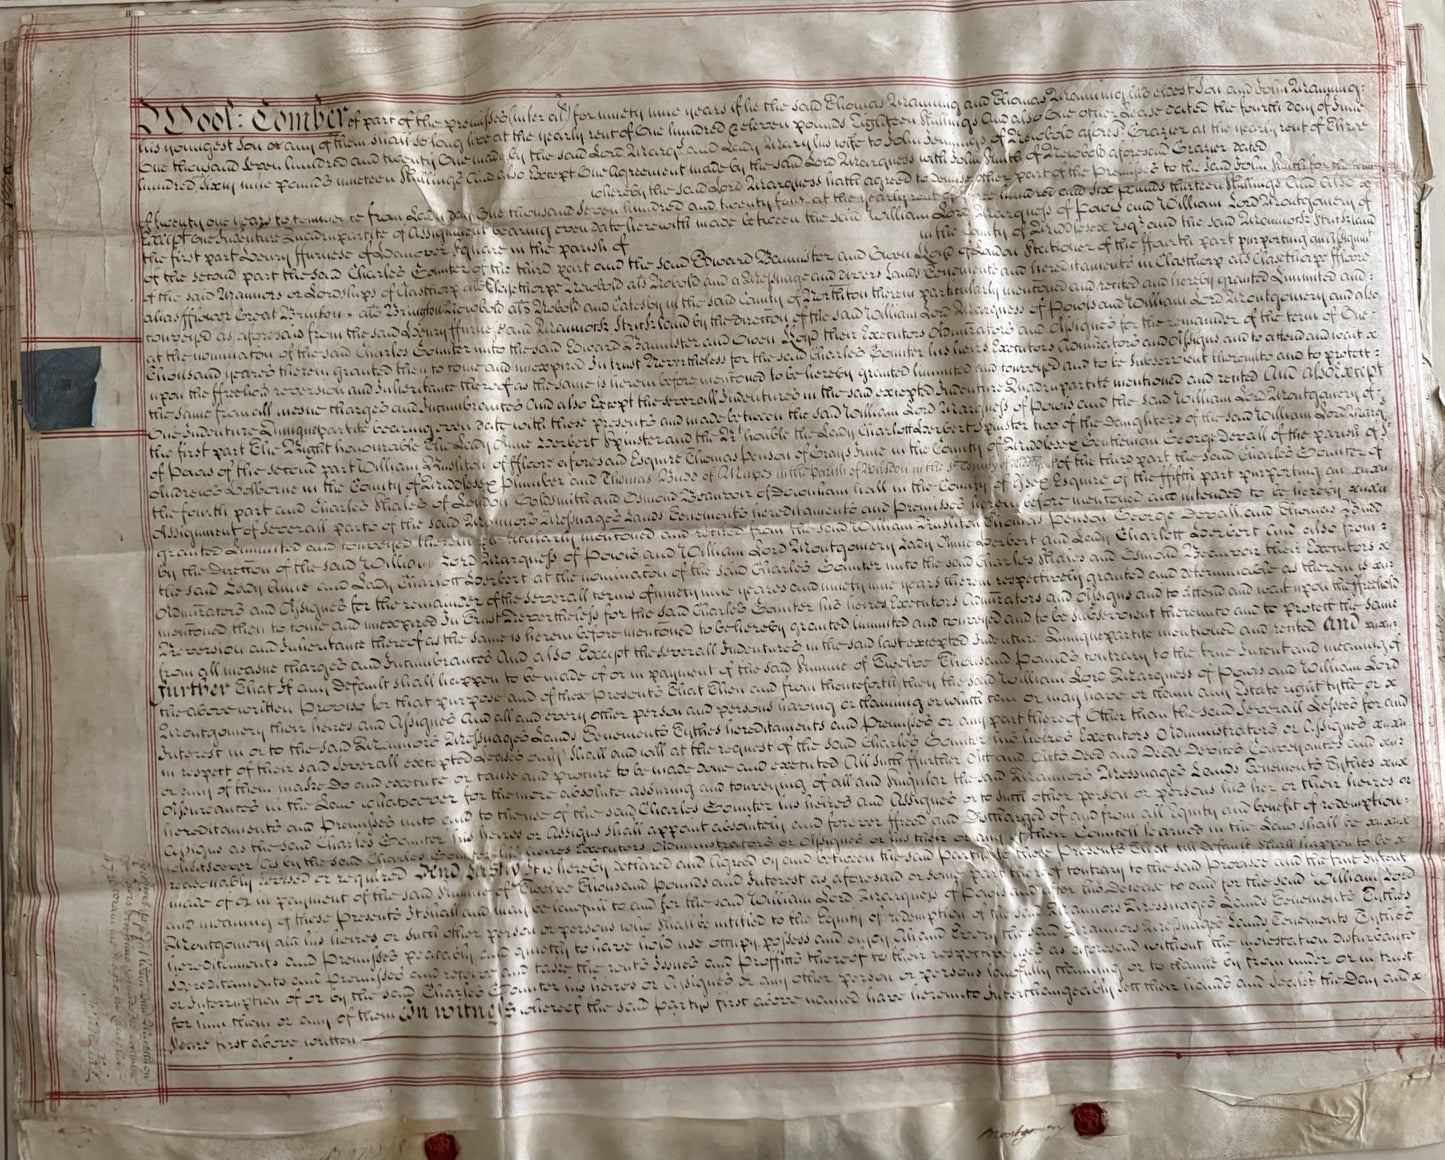 Wool: Comber of part of the premisses (inter al) for ninety nine years if he the said Thomas Manning and Thomas Manning his eldest Son and John Manning
his youngest Son or any of them shall so long live at the yearly rent of One hundred & eleven pounds Eighteen Shillings And also One other Lease dated the fourth day of June
One thousand Seven hundred and twenty One made by the said Lord Marqs and Lady Mary his wife to John Jennings of Newbold aforesd Grazier at the yearly rent of Three
hundred Sixty nine pounds nineteen Shillings And also Except One Agreement made by the said Lord Marquess with John Smith of Newbold aforesaid Grazier dated
whereby the said Lord Marquess hath agreed to demise other part of the Premises to the said John Smith for the term
of twenty one years to commence from Lady day One thousand Seven hundred and twenty four at the yearly rent of hundred and Six pounds thirteen Shillings And also x
Except One Indenture Quadrupartite of Assignment bearing even date herewith made between the said William Lord Marquess of Powis and William Lord Montgomery of
the first part Henry ffurnese of Hanover Square in the parish of in the County of Middlesex Esqr and the said Mannock Strickland
of the second part the said Charles Gounter of the third part and the said Edward Bannister and Owen Lloyd of London Stationer of the ffourth part purporting an Assignmt
of the said Mannors or Lordships of Clasthorp als Claysthorpe Newbold als Nobold and a Messuage and divers Lands Tenements and hereditaments in Clasthorp als Clasethorpe ffloore
alias fflower Great Brinton als Brington Newbold als Nobold and Catesby in the said County of Northton therein particularly mentioned and recited and hereby granted Limitted and :
conveyed as aforesaid from the said Henry ffurnese and Mannock Strickland by the direction of the said William Lord Marquess of Powis and William Lord Montgomery and also
at the nomination of the said Charles Gounter unto the said Edward Bannister and Owen Lloyd their Executors Administrators and Assignes for the remainder of the term of One
thousand years therein granted then to come and unexpired In trust Nevertheless for the said Charles Gounter his heirs Executors Adminrators and Assigns and to attend and wait x
upon the ffreehold reversion and Inheritance thereof as the same is herein before mentoned to be hereby granted limitted and conveyed and to be Subservient thereunto and to protect :
the same from all mesne charges and Incumbrances And also Except the severall Indentures in the said excepted Indenture Quadrupartite mentioned and recited And also Except
One Indenture Quinquepartite bearing even date with these presents and made between the said William Lord Marquess of Powis and the said William Lord Montgomery of :
the first part The Right honourable The Lady Anne Herbert Spinster and the Rt honble the Lady Charlott Herbert Spinster two of the Daughters of the said William Lord Marqs
of Powis of the second part William Rushton of ffloore aforesaid Esquire Thomas Penson of Grays Inne in the County of Middlesex Gentleman George Devall of the parish of St
Andrews Holborne in the County of Middlesex Plumber and Thomas Budd of in the parish of in the County of of the third part the said Charles Gounter of
the fourth part and Charles Shales of London Goldsmith and Osmond Beauvoir of Downham hall in the County of Essex Esquire of the ffifth part purporting an
Assignment of severall parts of the said Mannors Messuages Lands Tenements hereditaments and Premisses herein before mentioned and intended to be hereby
granted Limitted and conveyed therein particularly mentioned and recited from the said William Rushton Thomas Penson George Devall and Thomas Budd
by the Direction of the said William Lord Marquess of Powis and William Lord Montgomery Lady Anne Herbert and Lady Charlott Herbert And also from :
the said Lady Anne and Lady Charlott Herbert at the nomination of the said Charles Gounter unto the said Charles Shales and Osmond Beauvoir their Executors x
Adminrators and Assignes for the remainder of the severall terms of ninety nine years and ninety nine years therein respectively granted and determinable as therein is
mentioned then to come and unexpired In Trust Nevertheless for the said Charles Gounter his heires Executors Adminrators and Assigns and to attend and wait upon the ffreehold
Reversion and Inheritance thereof as the same is herein before mentoned to be hereby granted limitted and conveyed and to be Subservient thereunto and to protect the same
from all measne charges and Incumbrances And also Except the severall Indentures in the said last excepted Indenture Quinquepartite mentioned and recited And
further That If any Default shall happen to be made of or in payment of the said Summe of Twelve Thousand Pounds contrary to the true Intent and meaning of
the above written Proviso for that purpose and of these Presents That Then and from thenceforth they the said William Lord Marquess of Powis and William Lord
Montgomery their heires and Assignes And all and every other person and persons having or claiming or which can or may have or claim any Estate right tytle or x
Interest in or to the said Mannors Messuages Lands Tenements Tythes hereditaments and Premises or any part thereof Other than the said severall Lessees for and
in respect of their said severall excepted Leases only shall and will at the request of the said Charles Gounter his heires Executors Administrators or Assignes
or any of them make Do and execute or cause and procure to be made done and executed All such ffurther Act and Acts Deed and Deeds Devices Conveyances and
Assurances in the Law whatsoever for the more absolute assuring and conveying of all and singular the said Mannors Messuages Lands Tenements Tythes
hereditaments and Premisses unto and to the use of the said Charles Gounter his heires and Assignes or to such other person or persons his her or their heires or
Assignes as the said Charles Gounter his heires or Assigns shall appoint absolutely and forever ffreed and Discharged of and from all Equity and benefit of redemption :
whatsoever As by the said Charles Gounter his heires Executors Administrators or Assignes or his their or any of their Councell learned in the Law shall be
reasonably devised or required And Lastly It is hereby declared and Agreed by and between the said Parties to these Presents That till default shall happen to be x
made of or in payment of the said Summe of Twelve Thousand pounds and Interest as aforesaid or some part thereof contrary to the said Provisoe and the true Intent
and meaning of these Presents It shall and may be lawfull to and for the said William Lord Marquess of Powis and after his Decease to and for the said William Lord
Montgomery and his heires or such other person or persons who shall be intitled to the Equity of redemption of the said Mannors Messuages Lands Tenements Tythes
hereditaments and Premisses peaceably and quietly to have hold use occupy possess and enjoy All and Every the said Mannors Messuages Lands Tenements Tythes
Hereditaments and Premisses and receive and take the rents Issues and Proffitts thereof to their respective uses as aforesaid without the molestation disturbance
or Interruption of or by the said Charles Gounter his heires or Assignes or any other person or persons lawfully claiming or to claime by from under or in trust
for him them or any of them In witness whereof the said Partys first above named have hereunto Interchangeably sett their hands and seales the Day and x
Yeare first above written
Montgomery